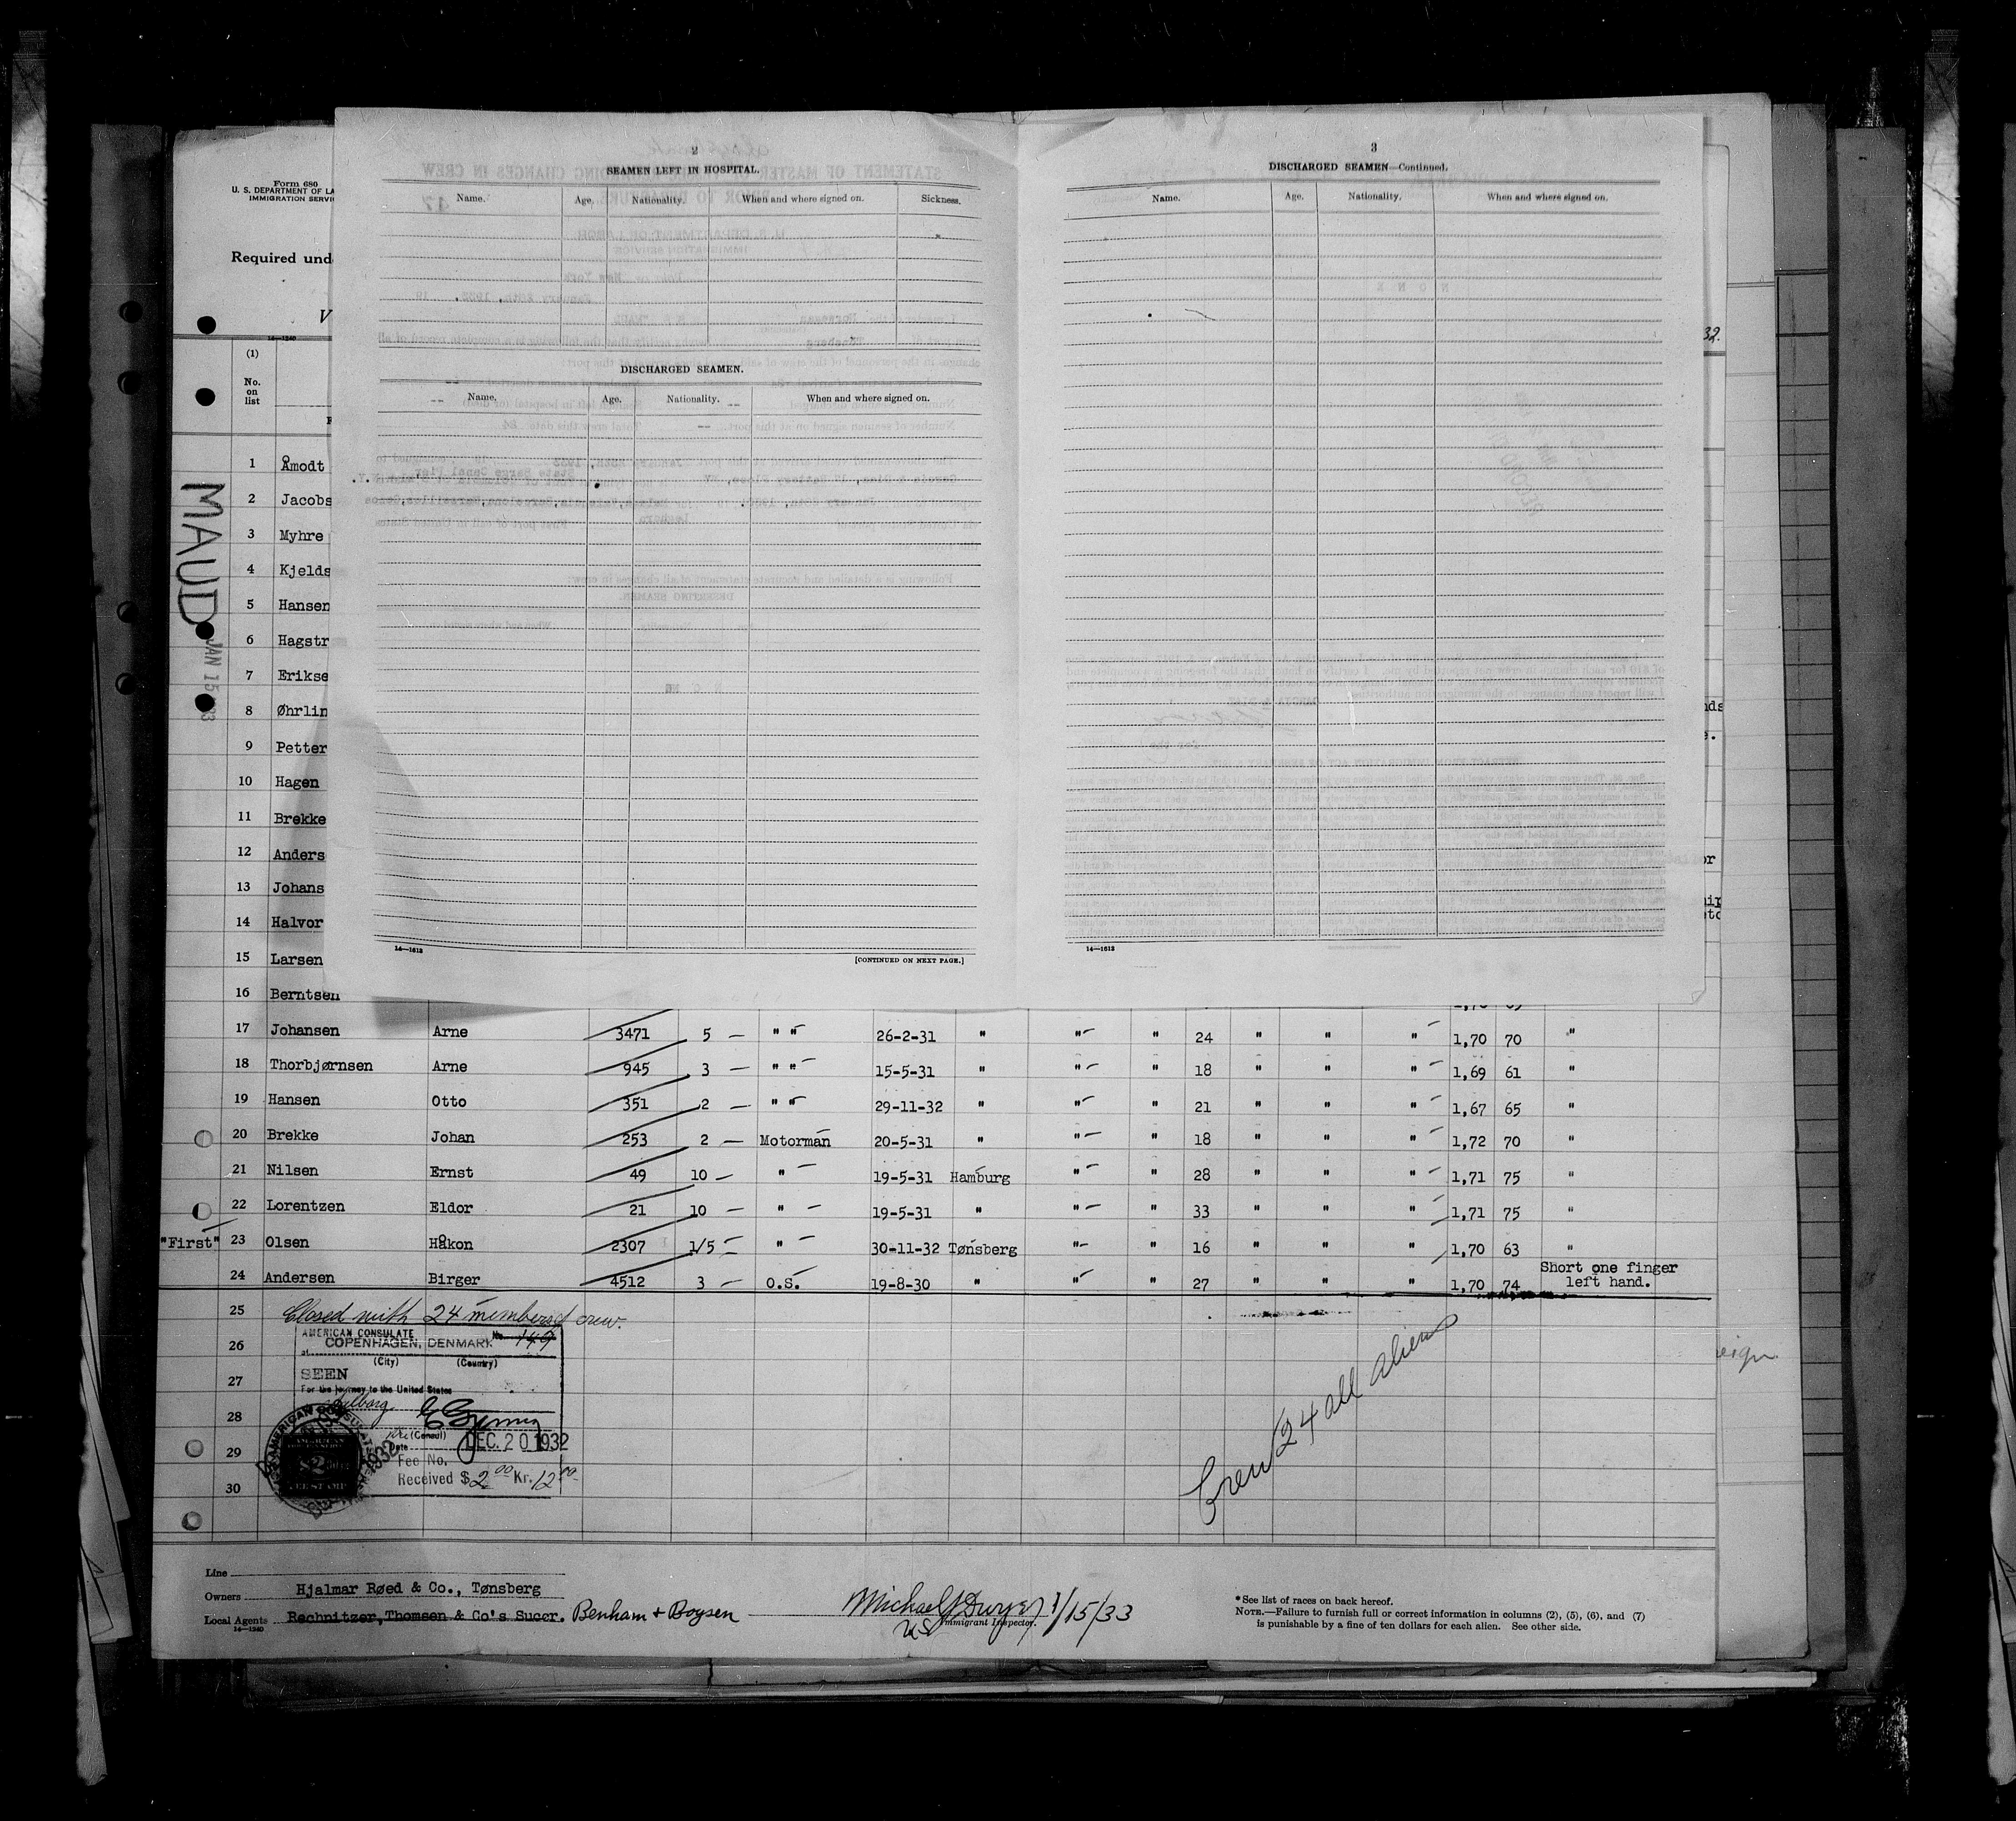 2
SEAMEN LEFT IN HOSPITAL.
Name. Age. Nationality. When and where signed on. Sickness.
DISCHARGED SEAMEN.
Name. Age. Nationality. When and where signed on.
14—1612
[CONTINUED ON NEXT PAGE.]
3
DISCHARGED SEAMEN—Continued.
Name. Age. Nationality. When and where signed on.
14—1612
Form 680
U. S. DEPARTMENT OF LA
IMMIGRATION SERVIC
Required und
V
14—1240
32.
(1)
No.
on
list
MAUD
JAN 15
1 Åmodt
2 Jacobs
3 Myhre
4 Kjelds
5 Hansen
6 Hagstr
7 Erikse
8 Øhrlin
9 Petter
10 Hagen
11 Brekke
12 Anders
13 Johans
14 Halvor
15 Larsen
16 Berntsen
17 Johansen Arne 3471 5 — " " 26-2-31 " " " 24 " " " 1,70 70 "
18 Thorbjørnsen Arne 945 3 — " " 15-5-31 " " " 18 " " " 1,69 61 "
19 Hansen Otto 351 2 — " " 29-11-32 " " " 21 " " " 1,67 65 "
20 Brekke Johan 253 2 — Motorman 20-5-31 " " " 18 " " " 1,72 70 "
21 Nilsen Ernst 49 10 — " 19-5-31 Hamburg " " 28 " " " 1,71 75 "
22 Lorentzen Eldor 21 10 — " 19-5-31 " " " 33 " " " 1,71 75 "
"First" 23 Olsen Håkon 2307 1/5 — " 30-11-32 Tønsberg " " 16 " " " 1,70 63 "
24 Andersen Birger 4512 3 — O.S. 19-8-30 " " " 27 " " " 1,70 74 Short one finger left hand.
25 Closed with 24 members of crew.
26
27
28
29
30
AMERICAN CONSULATE No. 149
at COPENHAGEN, DENMARK
(City) (Country)
SEEN
For the journey to the United States
(Consul)
Date DEC. 20 1932
Fee No.
Received $ 2.00 Kr. 12.00
Crew 24 all aliens
Line
Owners Hjalmar Røed & Co., Tønsberg
Local Agents Rechnitzer, Thomsen & Co's Sucer. Benham + Boysen
14—1240
Michael J Dwyer 1/15/33
US Immigrant Inspector.
* See list of races on back hereof.
NOTE.—Failure to furnish full or correct information in columns (2), (5), (6), and (7)
is punishable by a fine of ten dollars for each alien. See other side.